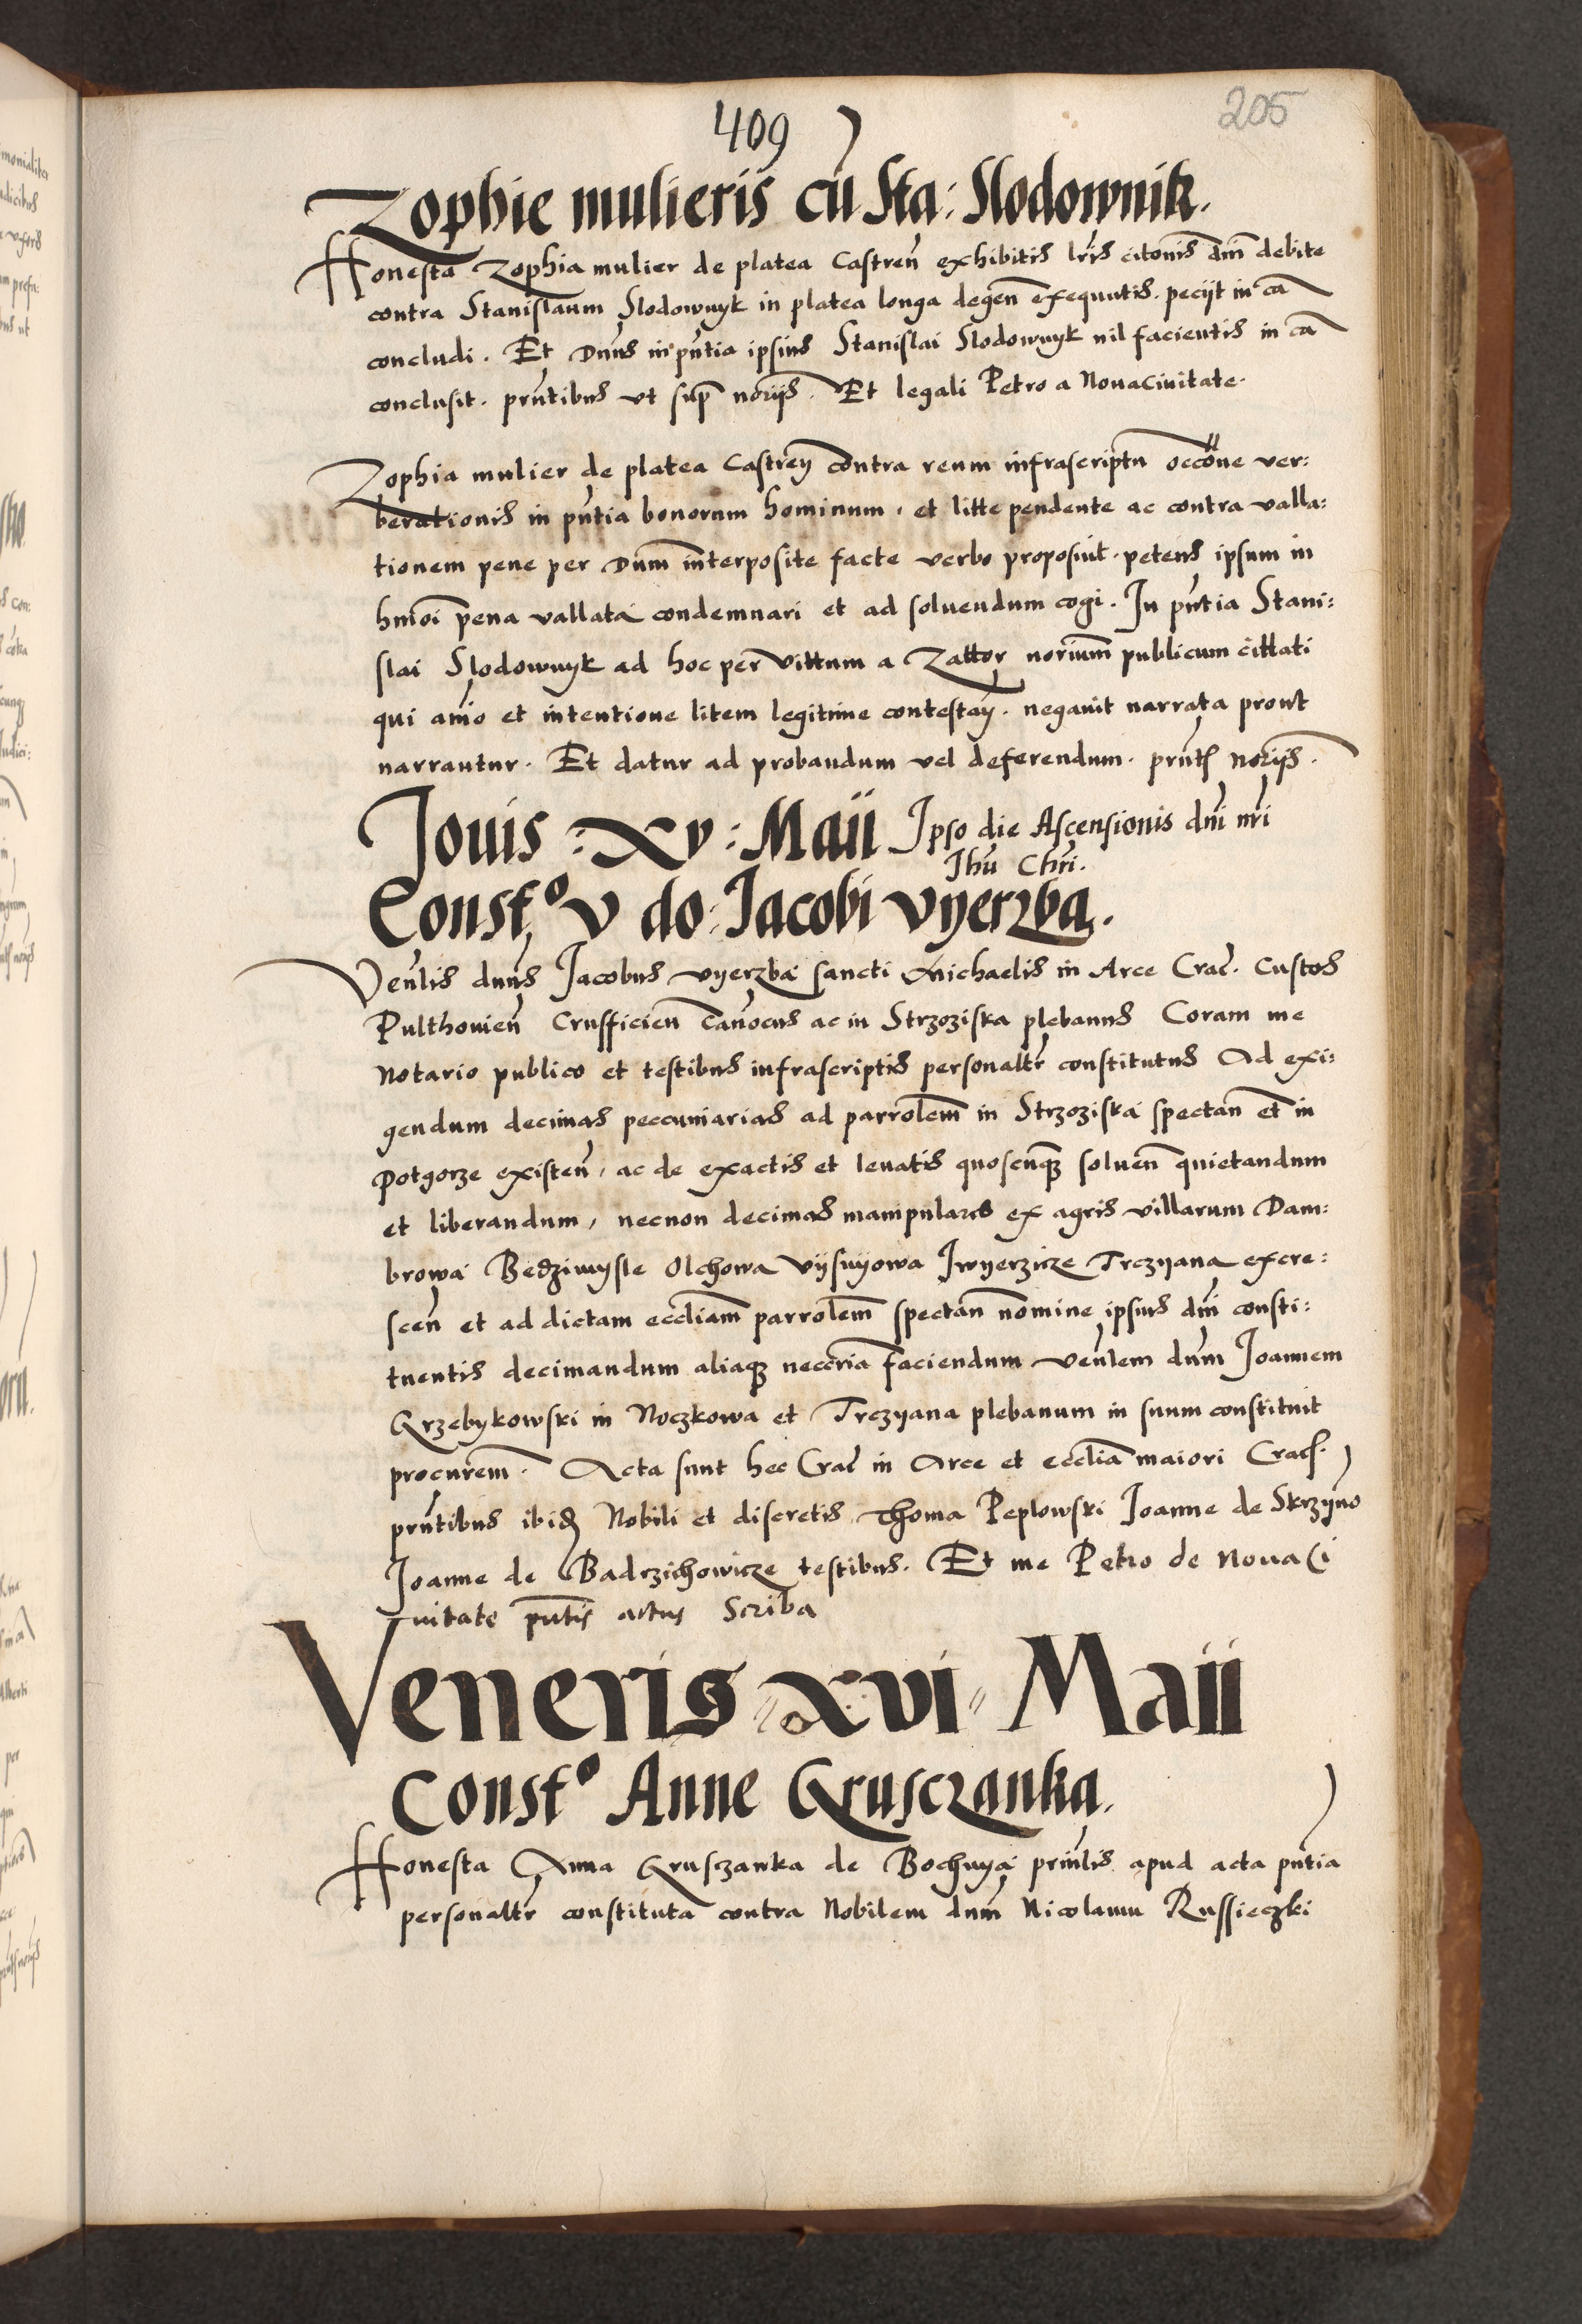 409
205
Zophie mulieris cū Sta: Slodownik.
Honesta Zophia mulier de platea Castreñ exhibitis lr̃is citõnis dni debite
contra Stanislaum Slodownyk in platea longa degeñ exequutis. peciit in cā
concludi. Et Dnūs in pñtia ipsius Stanislai Slodownyk nil facientis in cā
conclusit. pñtibus ut sup̃ noriis. Et legali Petro a Nova Civitate.
Zophia mulier de platea Castreñ contra reum infrascriptū occõne ver:
berationis in pñtia bonorum hominum, et litte pendente ac contra valla:
tionem pene per Dnm̃ interposite facte verbo proposuit. petens ipsum in
hmõi pena vallata condemnari et ad solvendum cogi. In pñtia Stani:
slai Slodownyk ad hoc per Vittum a Zattor noriũm publicum cittati
qui anĩo et intentione litem legitime contestañ. negavit narrata prout
narrantur. Et datur ad probandum vel deferendum. pñtƒ noriis.
Jovis : xv : Maii Ipso die Ascensionis dni nr̃i
Jhũ Chr̃i.
Constᵒ v do: Jacobi vyerzba.
Ven̄lis dnūs Jacobus vyerzba sancti Michaelis in Arce Crac̃. Custos
Pulthovieñ Crusfficieñ Canõcus ac in Strzoziska plebanus Coram me
Notario publico et testibus infrascriptis personaltr̃ constitutus Ad exi:
gendum decimas peccuniarias ad parrolem̃ in Strzoziska spectañ et in
potgorze existeñ, ac de exactis et levatis quoscunq̃ solveñ quietandum
et liberandum, necnon decimas manipulares ex agris villarum Dam:
browa Bedzimysle Olchowa Vysnyowa Jwyerzicze Trczyana excre:
sceñ et ad dictam eccliam̃ parrolem̃ spectañ nomine ipsius dni consti:
tuentis decimandum aliaq̃ neccria faciendum ven̄lem dnm̃ Joannem
Grzebykowski in Noczkowa et Trczyana plebanum in suum constituit
procurem̃. Acta sunt hec Crac̃ in Arce et ecclia maiori Cracƒ.
pñtibus ibid̃ Nobili et discretis Thoma Peplowski Joanne de Skrzyno
Joanne de Badrzichowicze testibus. Et me Petro de Nova Ci
vitate pñtis actus Scriba
Veneris xvi Maii
Constᵒ Anne Grusczanka.
Honesta Anna Grusczanka de Bochnya prin̄lis apud acta pñtia
personaltr̃ constituta contra Nobilem dnm̃ Nicolaum Russieczki